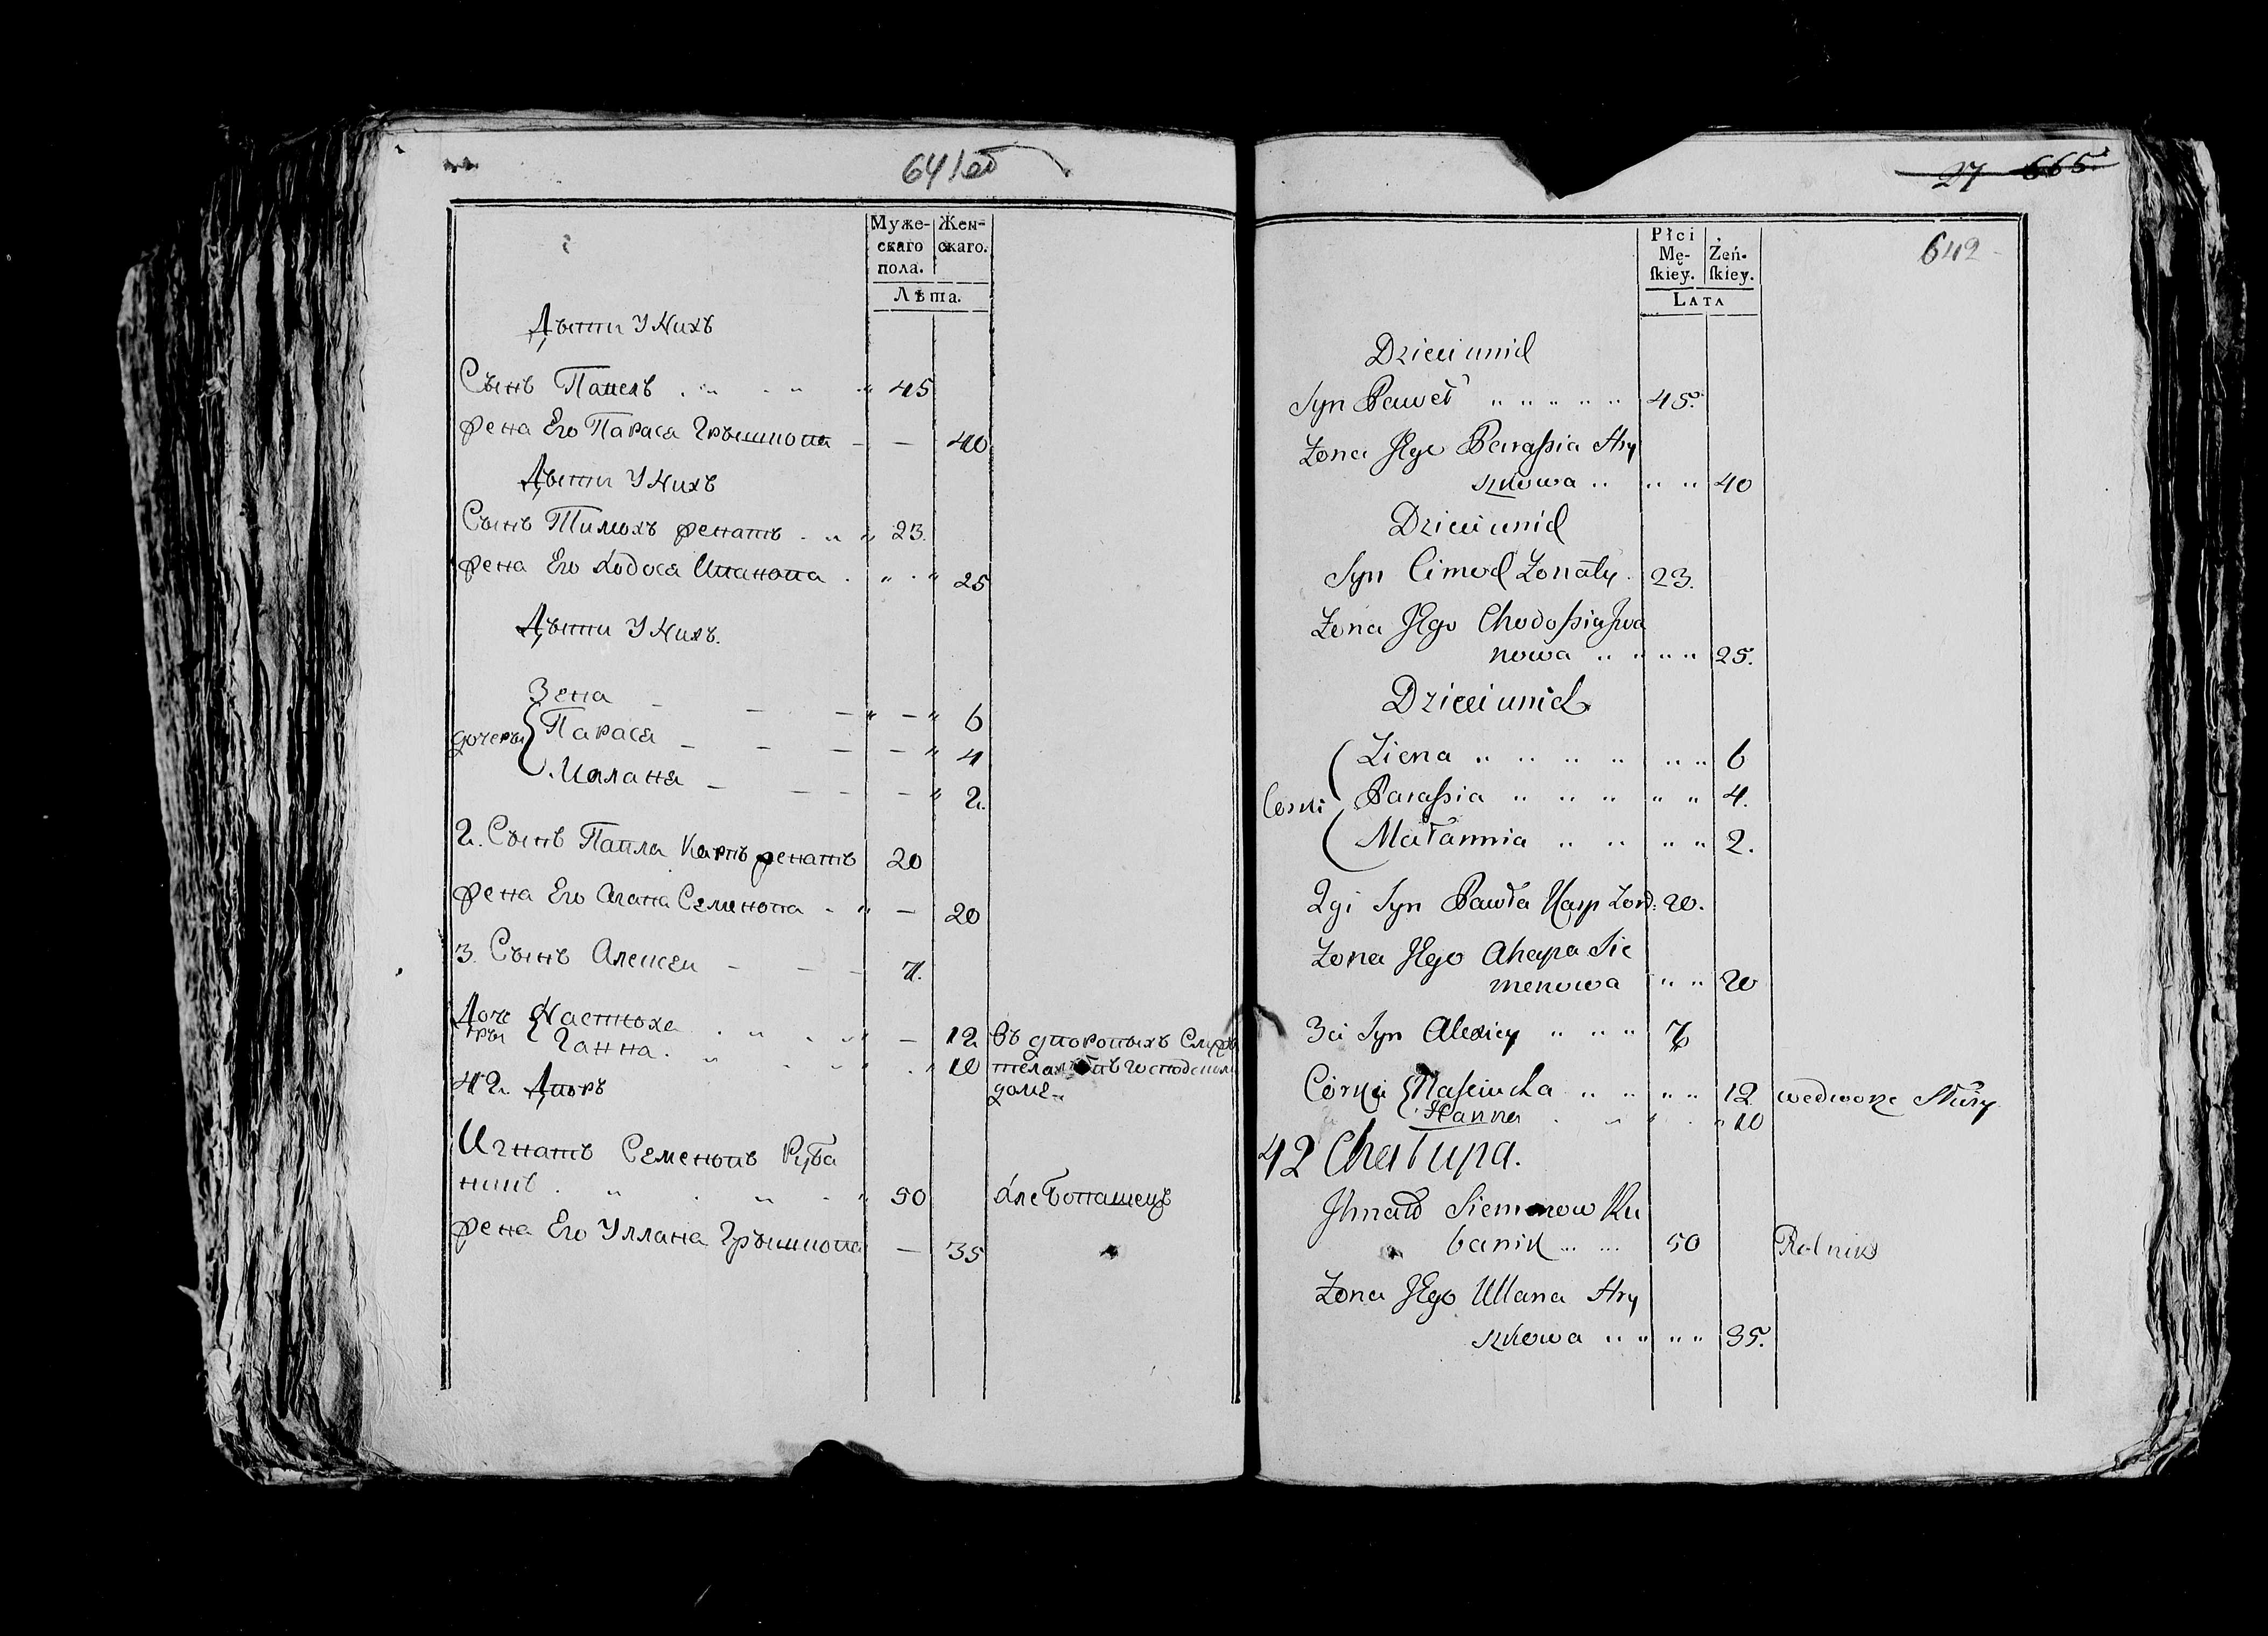 641 об
Муже-
скаго
пола.
Жен-
скаго.
Лѣта.
Дѣти У Нихъ
Сынъ Павелъ 45
жена Его Параса Грышкова — 40
Дѣти У Нихъ
Сынъ Тимохъ женатъ 23.
жена Его Ходося Иванова 25
Дѣти У Нихъ.
Зена 6
дочеры Параса 4
Малана 2.
2. Сынъ Павла Карпъ женатъ 20
жена Его Агапа Семенова — 20
3. Сынъ Алексей 7.
Доче Настюха — 12 Въ дворовыхъ Служы
тры Ганна. 10 телахъ въ Господском
42. Дворъ доме
Игнатъ Семеновъ Руба
никъ 50 Хлебопашецъ
жена Его Уллана Грышкова — 35
27 665
642
Płci
Mę-
ſkiey.
Żeń-
ſkiey.
LATA
Dzieci unich
Syn Paweł 45.
Żona Jego Paraſsia Hry
szkowa 40
Dzieci unich
Syn Cimoch Żonaty. 23.
Żona Jego Chodoſsia Iwa
nowa 25.
Dzieci unich
Ziena 6
Corki Paraſsia 4.
Małannia 2.
2gi Syn Pawła Karp Żon: 20.
Żona Jego Ahapa Sie
menowa 20
3ci Syn Alexiey 7
Córki Naſciucha 12 wedworze Służy
Hanna 10
42 Chałupa.
Jhnat Siemionow Ru
banik 50 Rolnik
Żona Jego Ullana Hry
szkowa 35.